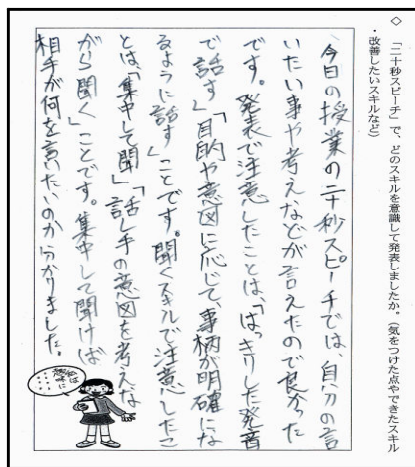 ◇「二十秒スピーチ」で、どのスキルを意識して発表しましたか。(気をつけた点やできたスキル
・改善したいスキルなど)
今日の授業の二十秒スピーチでは、自分の言
いたい事や考えなどが言えたので良かった
です。発表で注意したことは、「はっきりした発音
で話す」「目的や意図に応じて、事柄が明確にな
るように話す」ことです。聞くスキルで注意したこ
とは、「集中して聞」「話し手の意図を考えな
がら聞く」ことです。集中して聞けば
相手が何を言いたいのか分かりました。